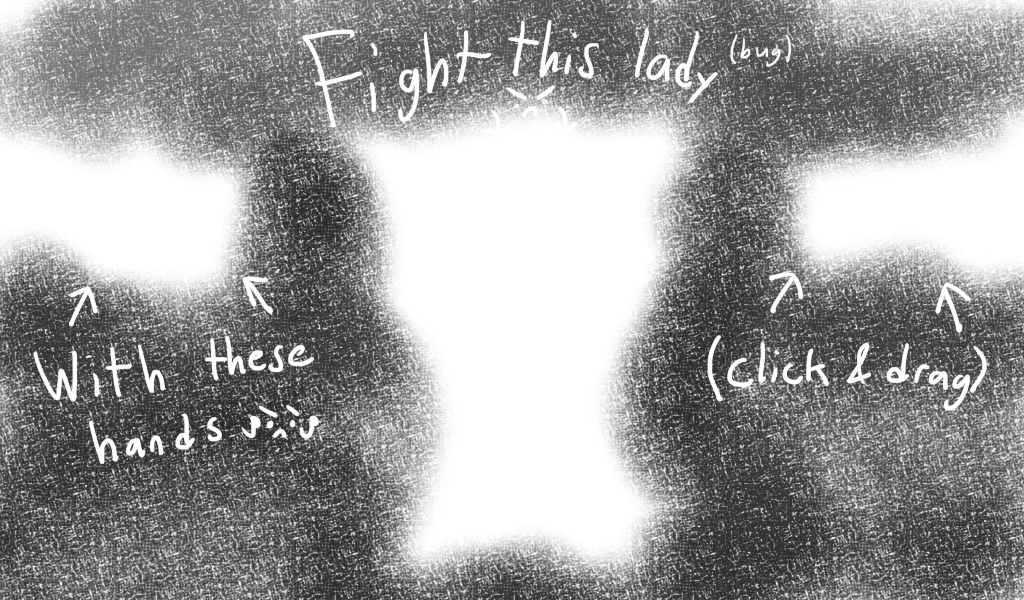 Fight this lady (bug)
With these
hands
(click & drag)